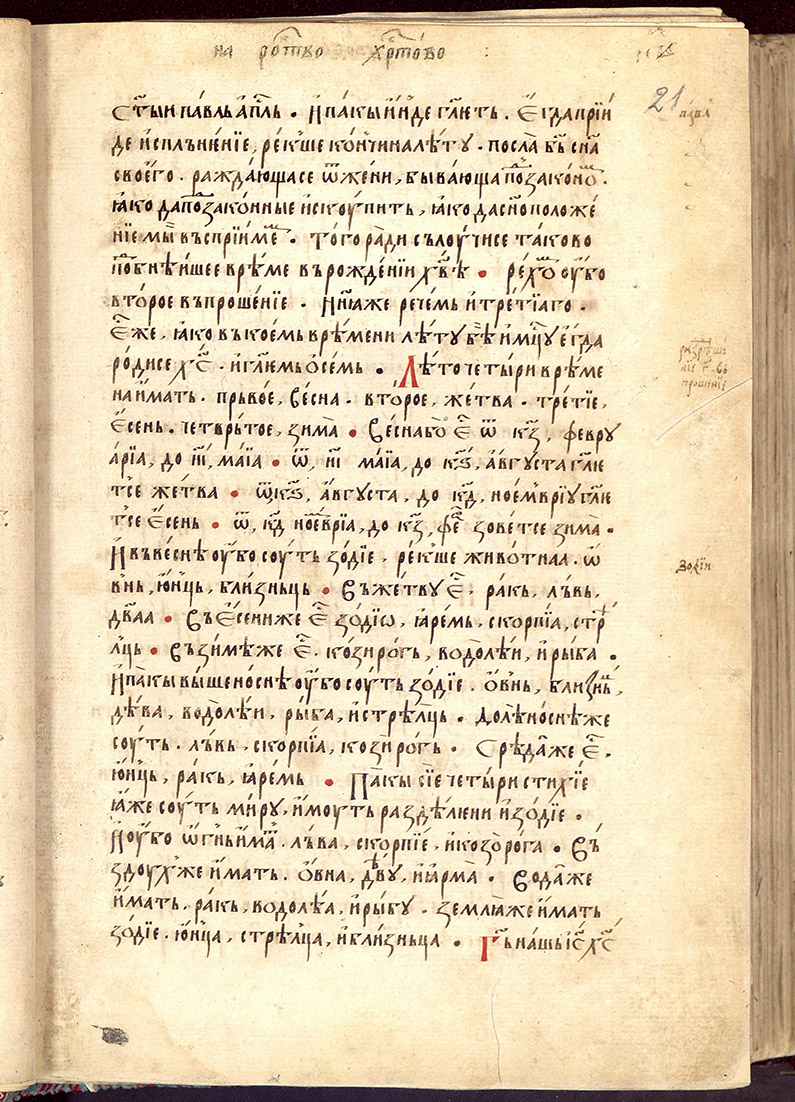 на рѡⷭ҇тво хрⷭ҇тово :
21
ст҃ы и павль ап҃ль . и҆ пакы и҆ и҆нде гл҃ють . є҆гда прїи
де и҆сплънє́нїе, рє́кше ко́нчина лѣ́тꙋ . посла̀ бг҃ь сн҃а
своє҆го . раждающа се ѿ жени, бывающа по̀ закѡ́нѡⷨ .
ꙗ҆ко да по̀законные и҆скоу́пить, ꙗ҆ко да сн҃оположе́
нїе мы̀ въсприи́меⷨ . то́го ра́ди сълоучи се таково
поⷣбнѣи́шее врѣ́ме въ рожде́нїи хв҃ѣ . рє́хѡⷨ оу҆бо
второе въпроше́нїе . Нн҃ꙗ же рече́мь и҆ тре́тїаго .
є҆́же, ꙗ҆ко въ кое́мь врѣ́мени лѣ́тꙋ бѣ̀ и҆мꙋ́щꙋ є҆гда
ро́ди се хс҃ . и҆ гл҃юмь о҆семь . Лѣ́то четы́ри врѣме
на и҆́мать . прьво́е, весна . вто́рое, же́тва . тре́тїе,
є҆́сень . четврьтое, зима̀ . Весна бо̀ є҆ⷭ҇ ѿ к҃з, февру
а́рїа, до н҃і, ма́иа . ѿ, н҃і ма́їа, до к҃з, а҆́вгꙋста гл҃ю
т се же́тва . ѿ к҃з, а҆́вгꙋста, до к҃д, ноє́мврїꙋ гл҃ю
т се є҆́сень . ѿ, к҃д ное́врїа, до к҃з, феⷡ҇ зове́т се зима̀ .
И҆ въ веснѣ оу҆бо соу́ть зо́дїе, ре́кше живо́тнаа . ѡ҆
вн҃ь, ю҆нц҃ь, близньць . Въ же́твꙋ є҆ⷭ҇, ракь, лъвь,
дв҃аа . Въ є҆́сени же є҆ⷭ҇ зо́дїѡ, ꙗ҆ремь, скорпїа, стрѣ
лць . Въ зимѣ же є҆ⷭ҇ . ко́зирогь, водо́лѣи, и҆ рыба .
И҆ па́кы вы́шеноснѣ оу҆бо соуть зо́дїе . о҆вн҃ь, близнць,
дѣ́ва, водо́лѣи, ры́ба, и҆ стрѣ́лць . долѣ́носнѣ же
соу́ть . лъвь, скорпїа, ко́зирогь . Срѣдаⷨ же є҆ⷭ҇,
ю҆нць, ра́кь, ꙗ҆ремь . Па́кы сїе четы́ри стихїе
ꙗ҆́же соу́ть ми́рꙋ, и҆моуть раздѣ́люни и҆ зо́дїе .
И҆ оу҆бо ѿгнь и҆́маⷮ . лъва, скорпїе, и҆ козо̀рога . Въ́
здоух же и҆́мать . о҆́вна, дѣ́вꙋ, и҆ ꙗ҆рма̀ . Вода̀ же
и҆́мать . ра́кь, водо́лѣа, и҆ ры́бꙋ . землꙗ̀ же и҆мать
зо́дїе . ю҆нца, стрѣ́лца, и҆ бли́зньца . Гь҃ нашь і҆с҃ хс҃
павл
разрѣши
нїи г҃. въ
прошнїе
Зодїи